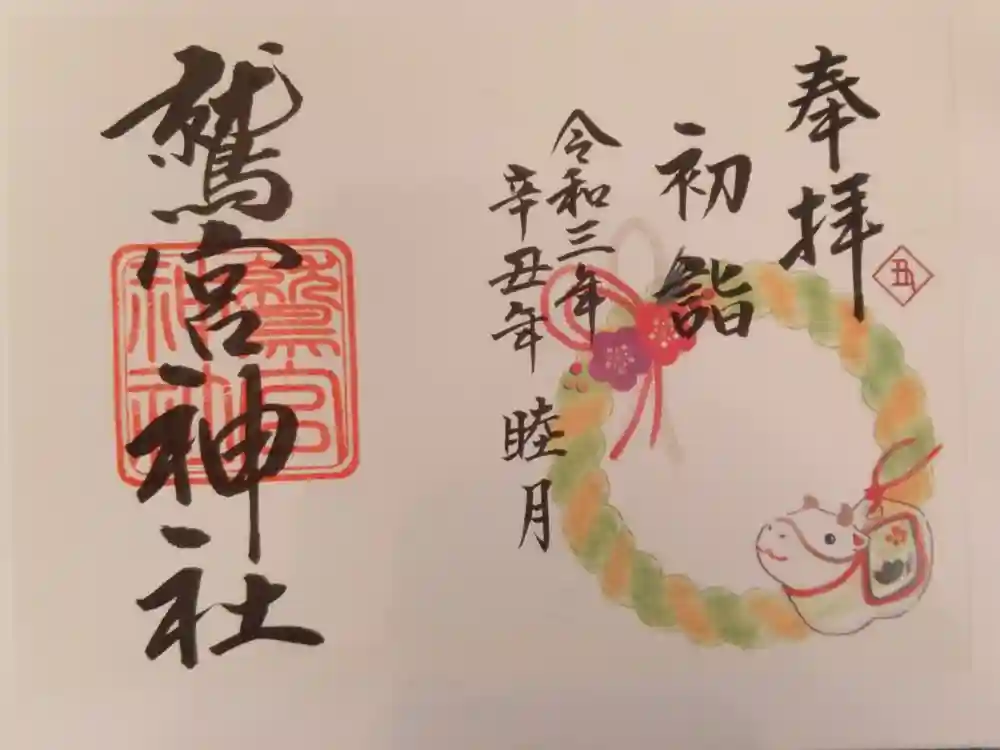 奉拝
丑
初詣
令和三年
辛丑年 睦月
鷲宮神社
鷲宮神社